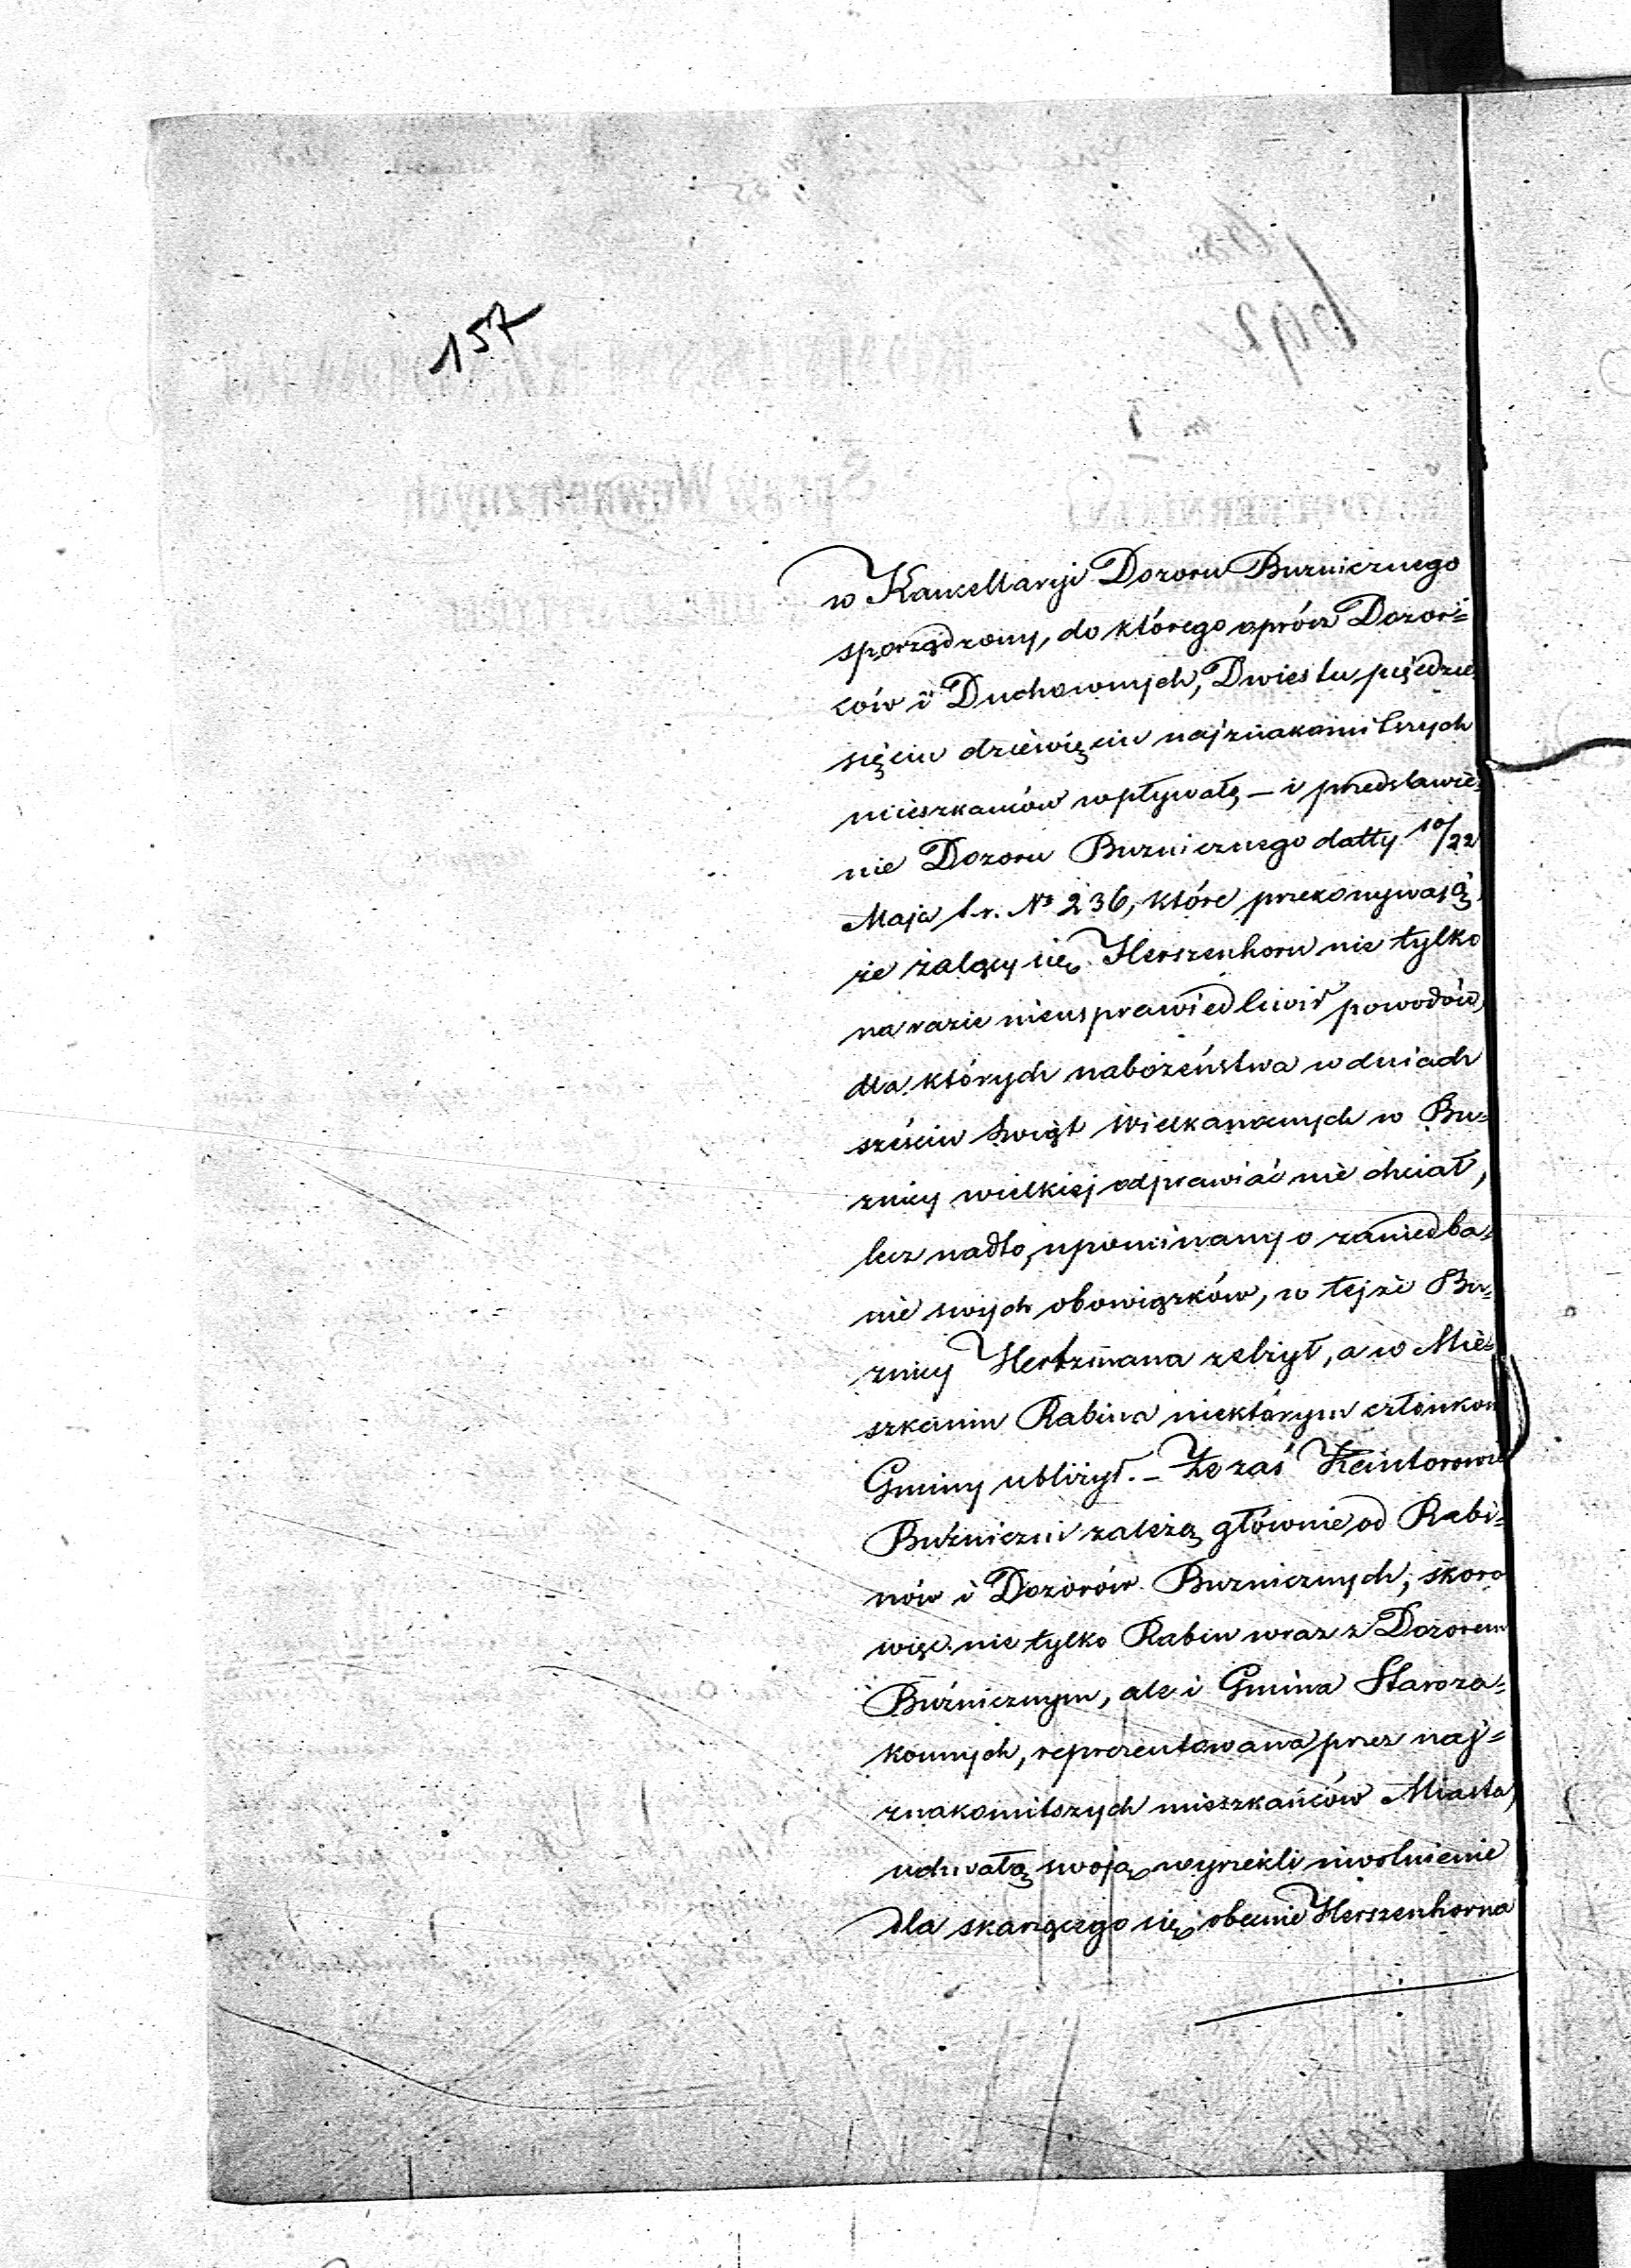 157
w Kancellaryi Dozoru Buzniczego
sporządzony, do którego oprócz Dozor=
ców i Duchownych, Dwiestu pięćdzie
sięciu dziewięciu najznakomitszych
mieszkańców wpływało, – i przedstawie=
nie Dozoru Buzniczego datty 10/22
Maja b.r. № 236, które przekonywają,
że żalący się Herszenhorn nie tylko
na razie nieusprawiedliwił powodów,
dla których nabożeństwa w dniach
sześciu Swiąt Wielkanocnych w Bu=
znicy wielkiej odprawiać nie chciał,
lecz nadto, upominany o zaniedba=
nie swych obowiązków, w tejże Bu=
znicy Hertzmana zelżył, a w Mie=
szkaniu Rabina niektórym członkom
Gminy ubliżył. – Że zaś Kantorowie
Buźniczni zależą głównie od Rabi=
nów i Dozorów Buzniczych, skoro
więc nie tylko Rabin wraz z Dozorem
Buźniczym, ale i Gmina Staroza=
konnych, reprezentowana przez naj=
znakomitszych mieszkańców Miasta,
uchwałą swoją wyrzekli uwolnienie
dla skarżącego się obecnie Herszenhorna